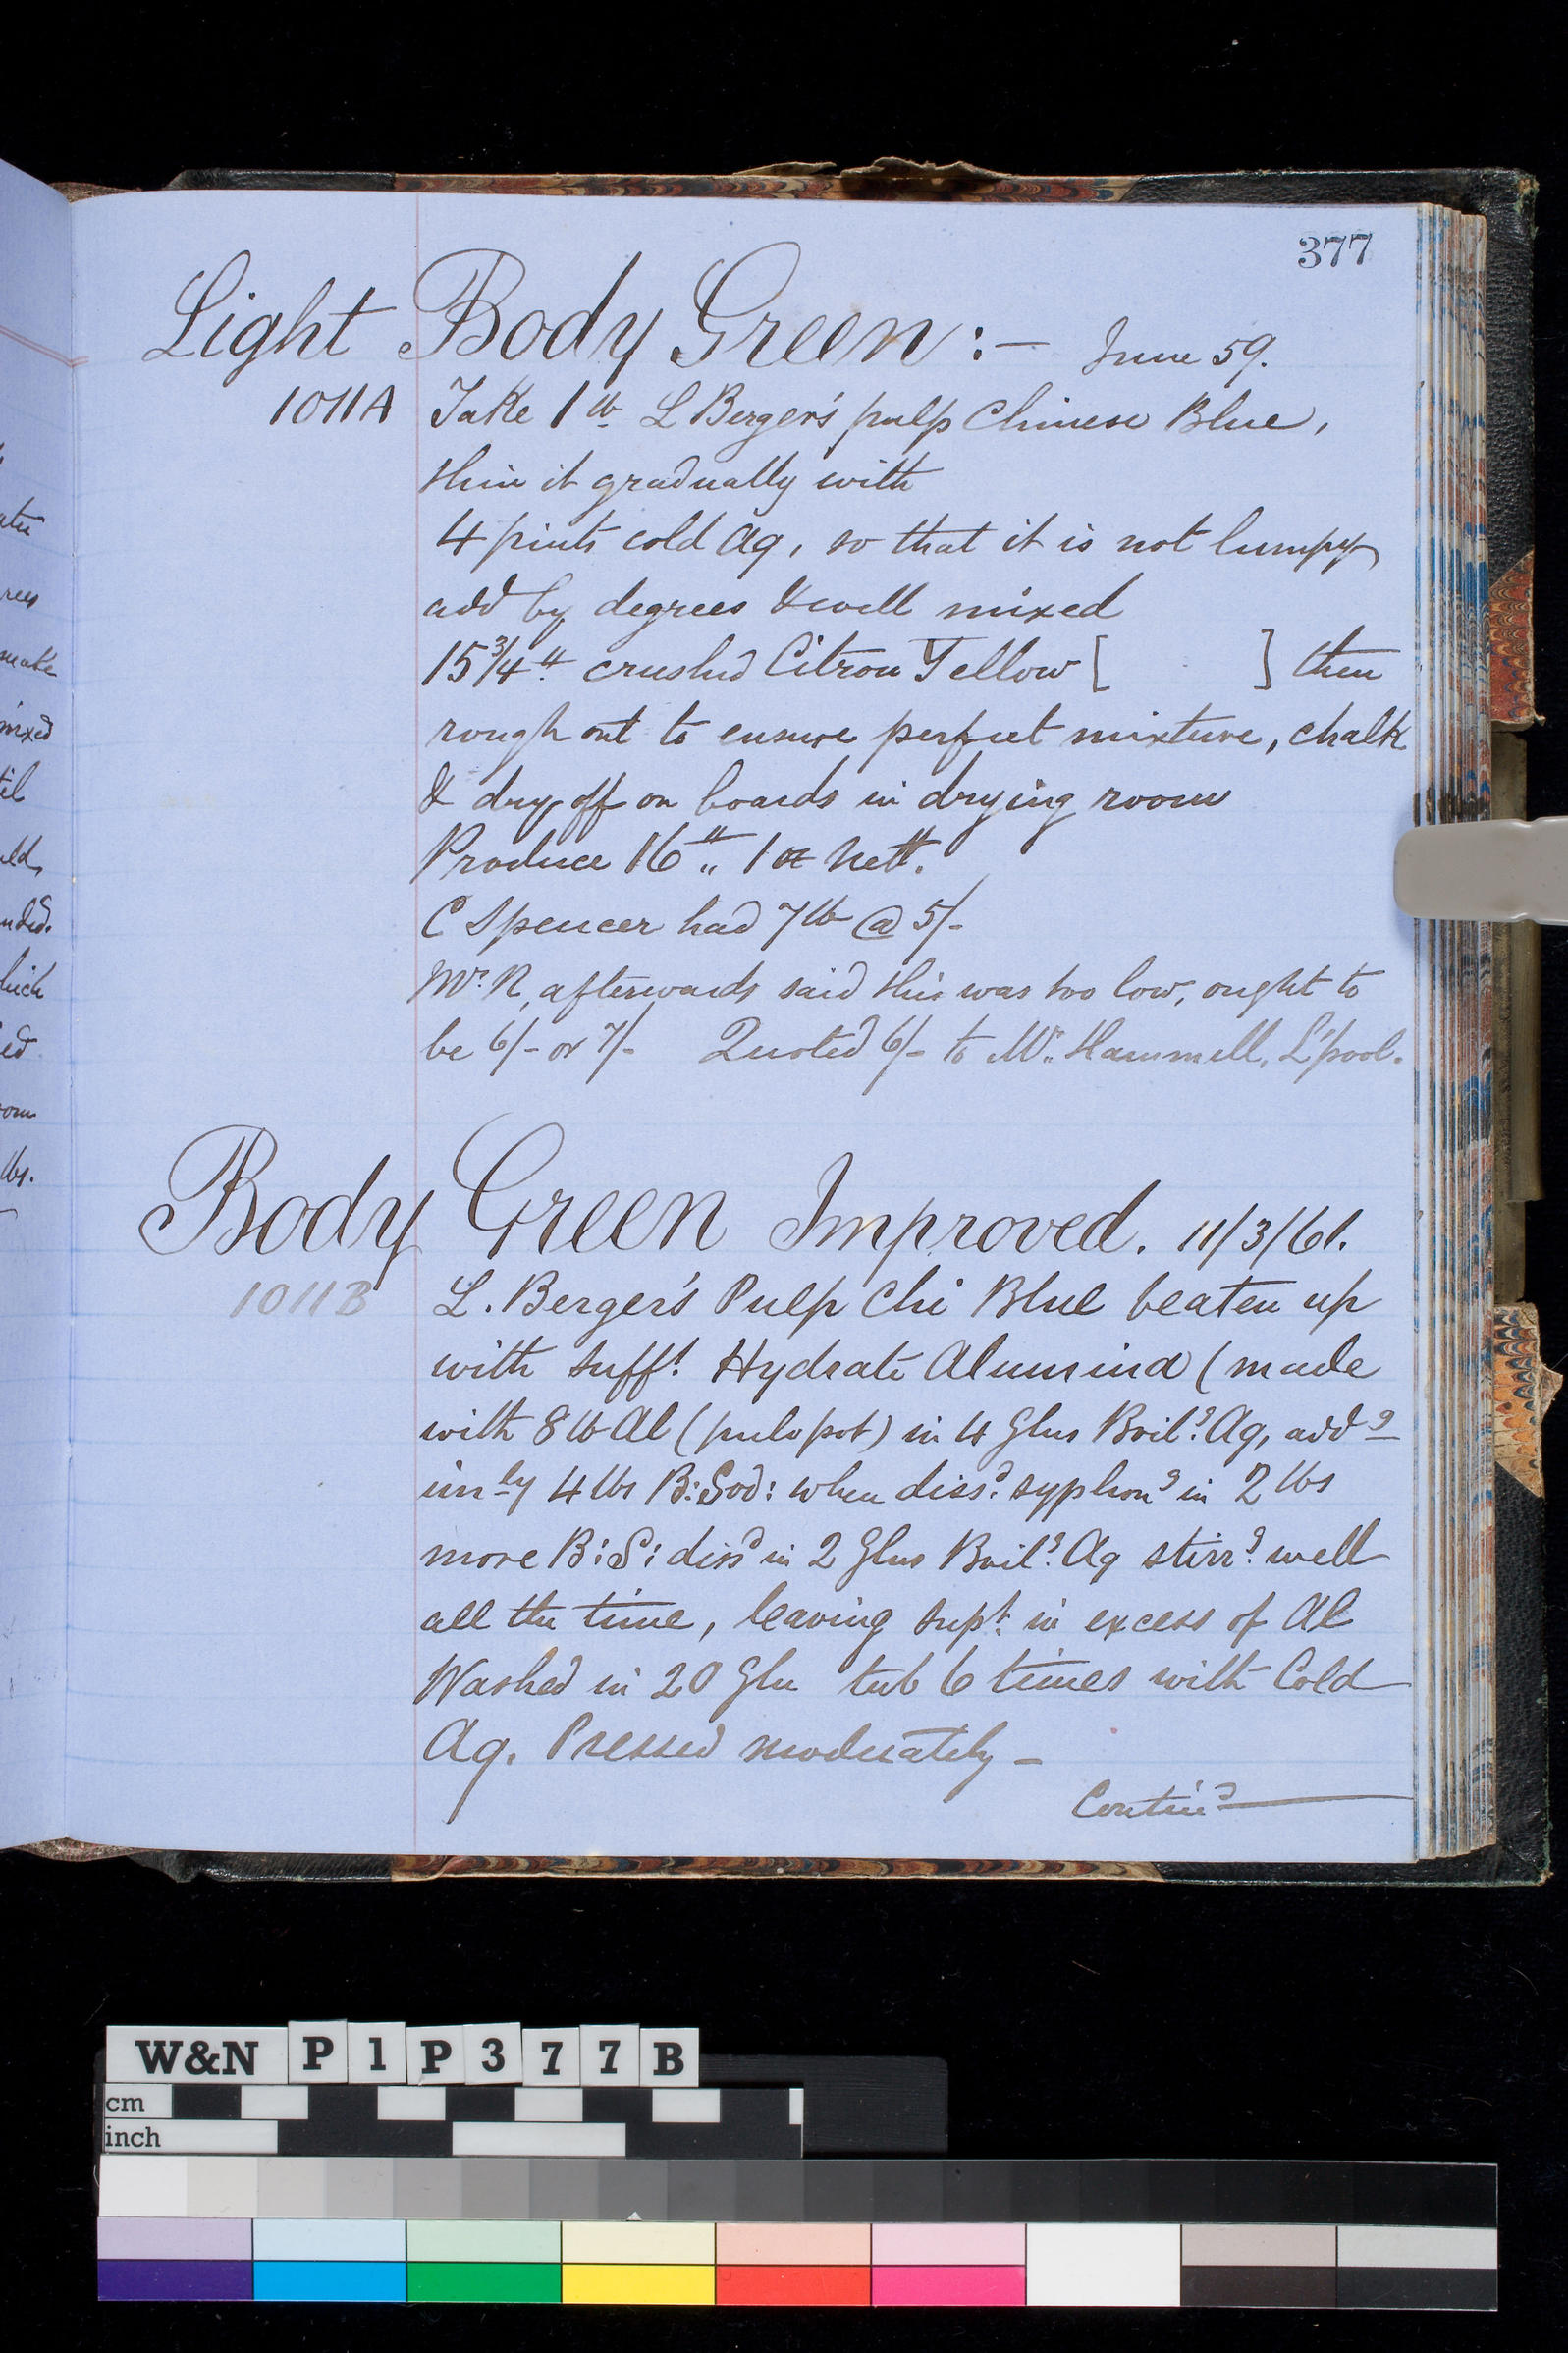 377
Light Body Green :- June 59.
1011A Take 1 lb L Berger's pulp Chinese Blue,
thin it gradually with
4 pints cold Aq, so that it is not lumpy
add by degrees & well mixed
15 3/4 lb crushed Citron Yellow [ ] then
rough out to ensure perfect mixture, chalk
& dry off on boards in drying room
Produce 16 lb ,, 1 oz nett.
C Spencer had 7 lb @ 5/-
Mr. R, afterwards said this was too low, ought to
be 6/- or 7/- Quoted 6/- to Mr. Hammell, L'pool.
Body Green Improved. 11/3/61.
1011B L. Berger's Pulp Chi Blue beaten up
with sufft. Hydrate Alumina (made
with 8 lb Al (pulv pot) in 4 Glns Boilg. Aq, addg
imly 4 lbs B: Sod: when dissd. syphong in 2 lbs
more B: S: dissd in 2 Glns Boilg. Aq stirrg. well
all the time, leaving supt. in excess of Al
Washed in 20 Gln tub 6 times with Cold
Aq. Pressed moderately -
Contind
ater
rees
make
mixed
til
uld,
nded.
hich
ed
oom
lbs.
W&N P1P377B
cm
inch